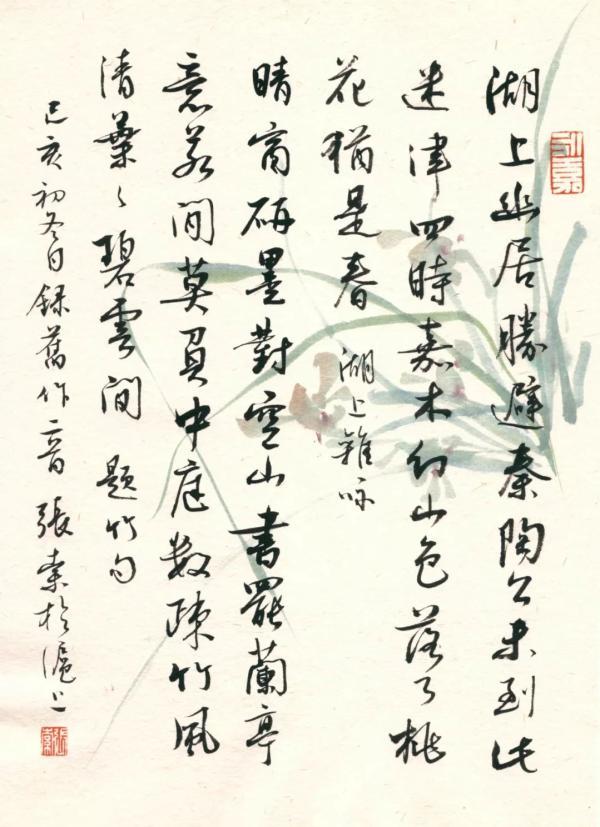 湖上幽居勝避秦陶公未到此
迷津四時嘉木幻山色落了桃
花猶是春 湖上雜咏
晴窗研墨對空山書罷蘭亭
意若閒莫負中庭數疎竹風
清葉々碧雲間 題竹句
己亥初冬日録舊作二首 張索於滬上
張索